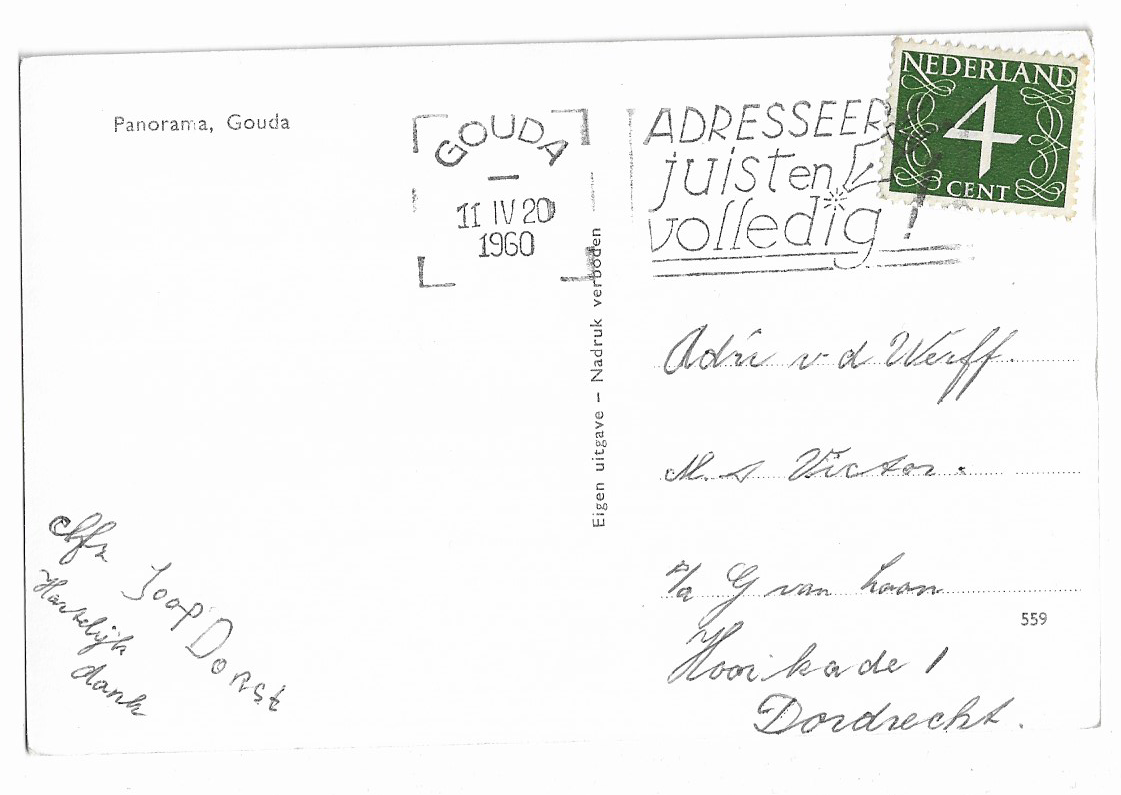 Panorama, Gouda
GOUDA
11 IV 20
1960
ADRESSEER
juist en
volledig!
NEDERLAND
4
CENT
Eigen uitgave – Nadruk verboden
Adri v d Werff.
M. s Victor.
p/a G van Loon
559
Hooikade 1
Dordrecht.
Afz Joop Dorst
Hartelijk
dank